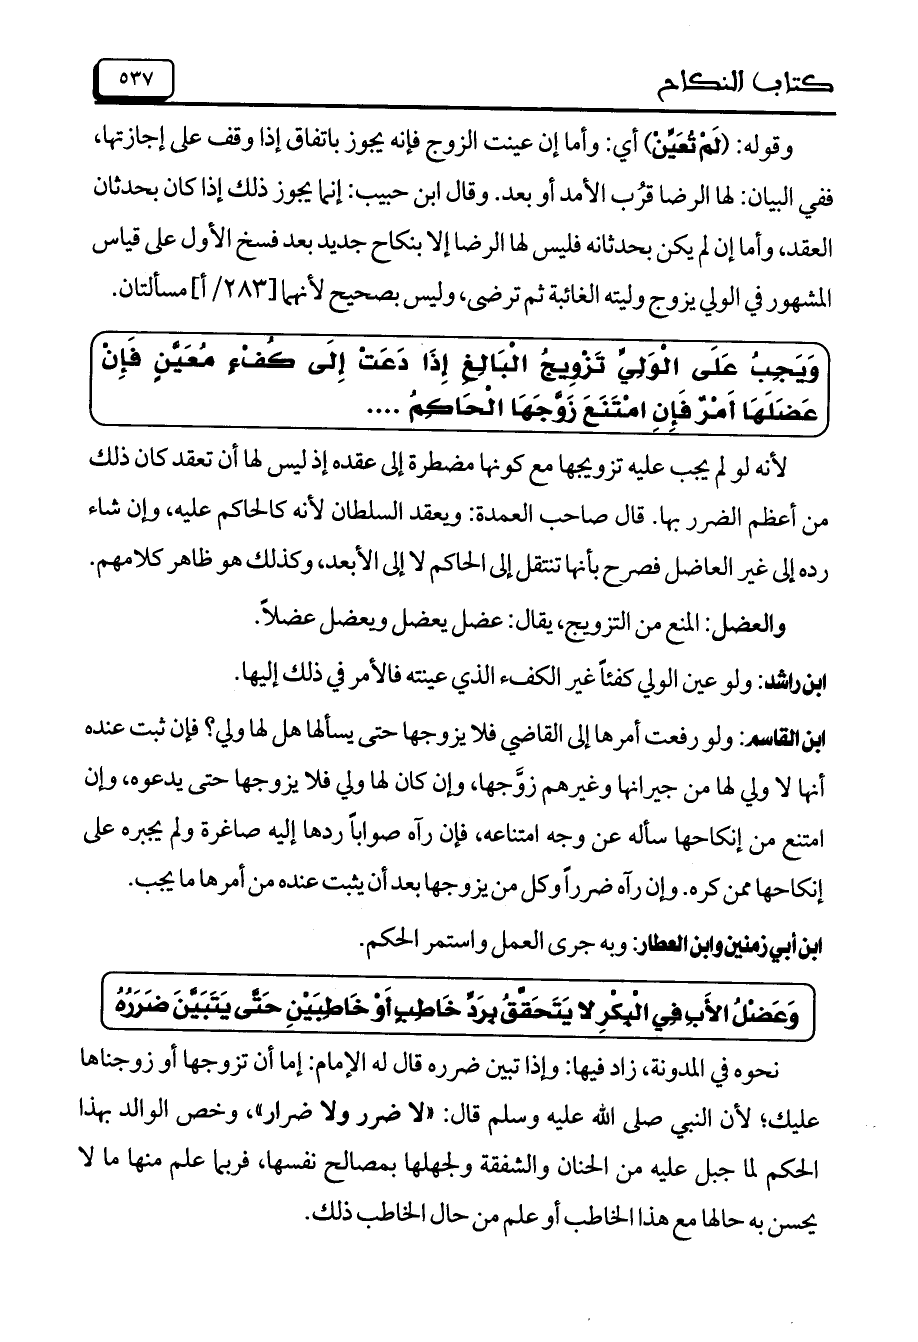 كتاب النكاح
٥٣٧
وقوله: (لَمْ تُعَيِّنْ) أي: وأما إن عينت الزوج فإنه يجوز باتفاق إذا وقف على إجازتها،
ففي البيان: لها الرضا قرُب الأمد أو بعد. وقال ابن حبيب: إنما يجوز ذلك إذا كان بحدثان
العقد، وأما إن لم يكن بحدثانه فليس لها الرضا إلا بنكاح جديد بعد فسخ الأول على قياس
المشهور في الولي يزوج وليته الغائبة ثم ترضى، وليس بصحيح لأنهما [٢٨٣/ أ] مسألتان.
وَيَجِبُ عَلَى الْوَلِيِّ تَزْوِيجُ الْبَالِغِ إِذَا دَعَتْ إِلَى كُفْءٍ مُعَيَّنٍ فَإِنْ
عَضَلَهَا أَمْرٌ فَإِنِ امْتَنَعَ زَوَّجَهَا الْحَاكِمُ ....
لأنه لو لم يجب عليه تزويجها مع كونها مضطرة إلى عقده إذ ليس لها أن تعقد كان ذلك
من أعظم الضرر بها. قال صاحب العمدة: ويعقد السلطان لأنه كالحاكم عليه، وإن شاء
رده إلى غير العاضل فصرح بأنها تنتقل إلى الحاكم لا إلى الأبعد، وكذلك هو ظاهر كلامهم.
والعضل: المنع من التزويج، يقال: عضل يعضل ويعضل عضلاً.
ابن راشد: ولو عين الولي كفئاً غير الكفء الذي عينته فالأمر في ذلك إليها.
ابن القاسم: ولو رفعت أمرها إلى القاضي فلا يزوجها حتى يسألها هل لها ولي؟ فإن ثبت عنده
أنها لا ولي لها من جيرانها وغيرهم زوَّجها، وإن كان لها ولي فلا يزوجها حتى يدعوه، وإن
امتنع من إنكاحها سأله عن وجه امتناعه، فإن رآه صواباً ردها إليه صاغرة ولم يجبره على
إنكاحها ممن كره. وإن رآه ضرراً وكل من يزوجها بعد أن يثبت عنده من أمرها ما يجب.
ابن أبي زمنين وابن العطار: وبه جرى العمل واستمر الحكم.
وَعَضْلُ الأَبِ فِي الْبِكْرِ لا يَتَحَقَّقُ بِرَدِّ خَاطِبٍ أَوْ خَاطِبَيْنِ حَتَّى يَتَبَيَّنَ ضَرَرُهُ
نحوه في المدونة، زاد فيها: وإذا تبين ضرره قال له الإمام: إما أن تزوجها أو زوجناها
عليك؛ لأن النبي صلى الله عليه وسلم قال: «لا ضرر ولا ضرار»، وخص الوالد بهذا
الحكم لما جبل عليه من الحنان والشفقة ولجهلها بمصالح نفسها، فربما علم منها ما لا
يحسن به حالها مع هذا الخاطب أو علم من حال الخاطب ذلك.